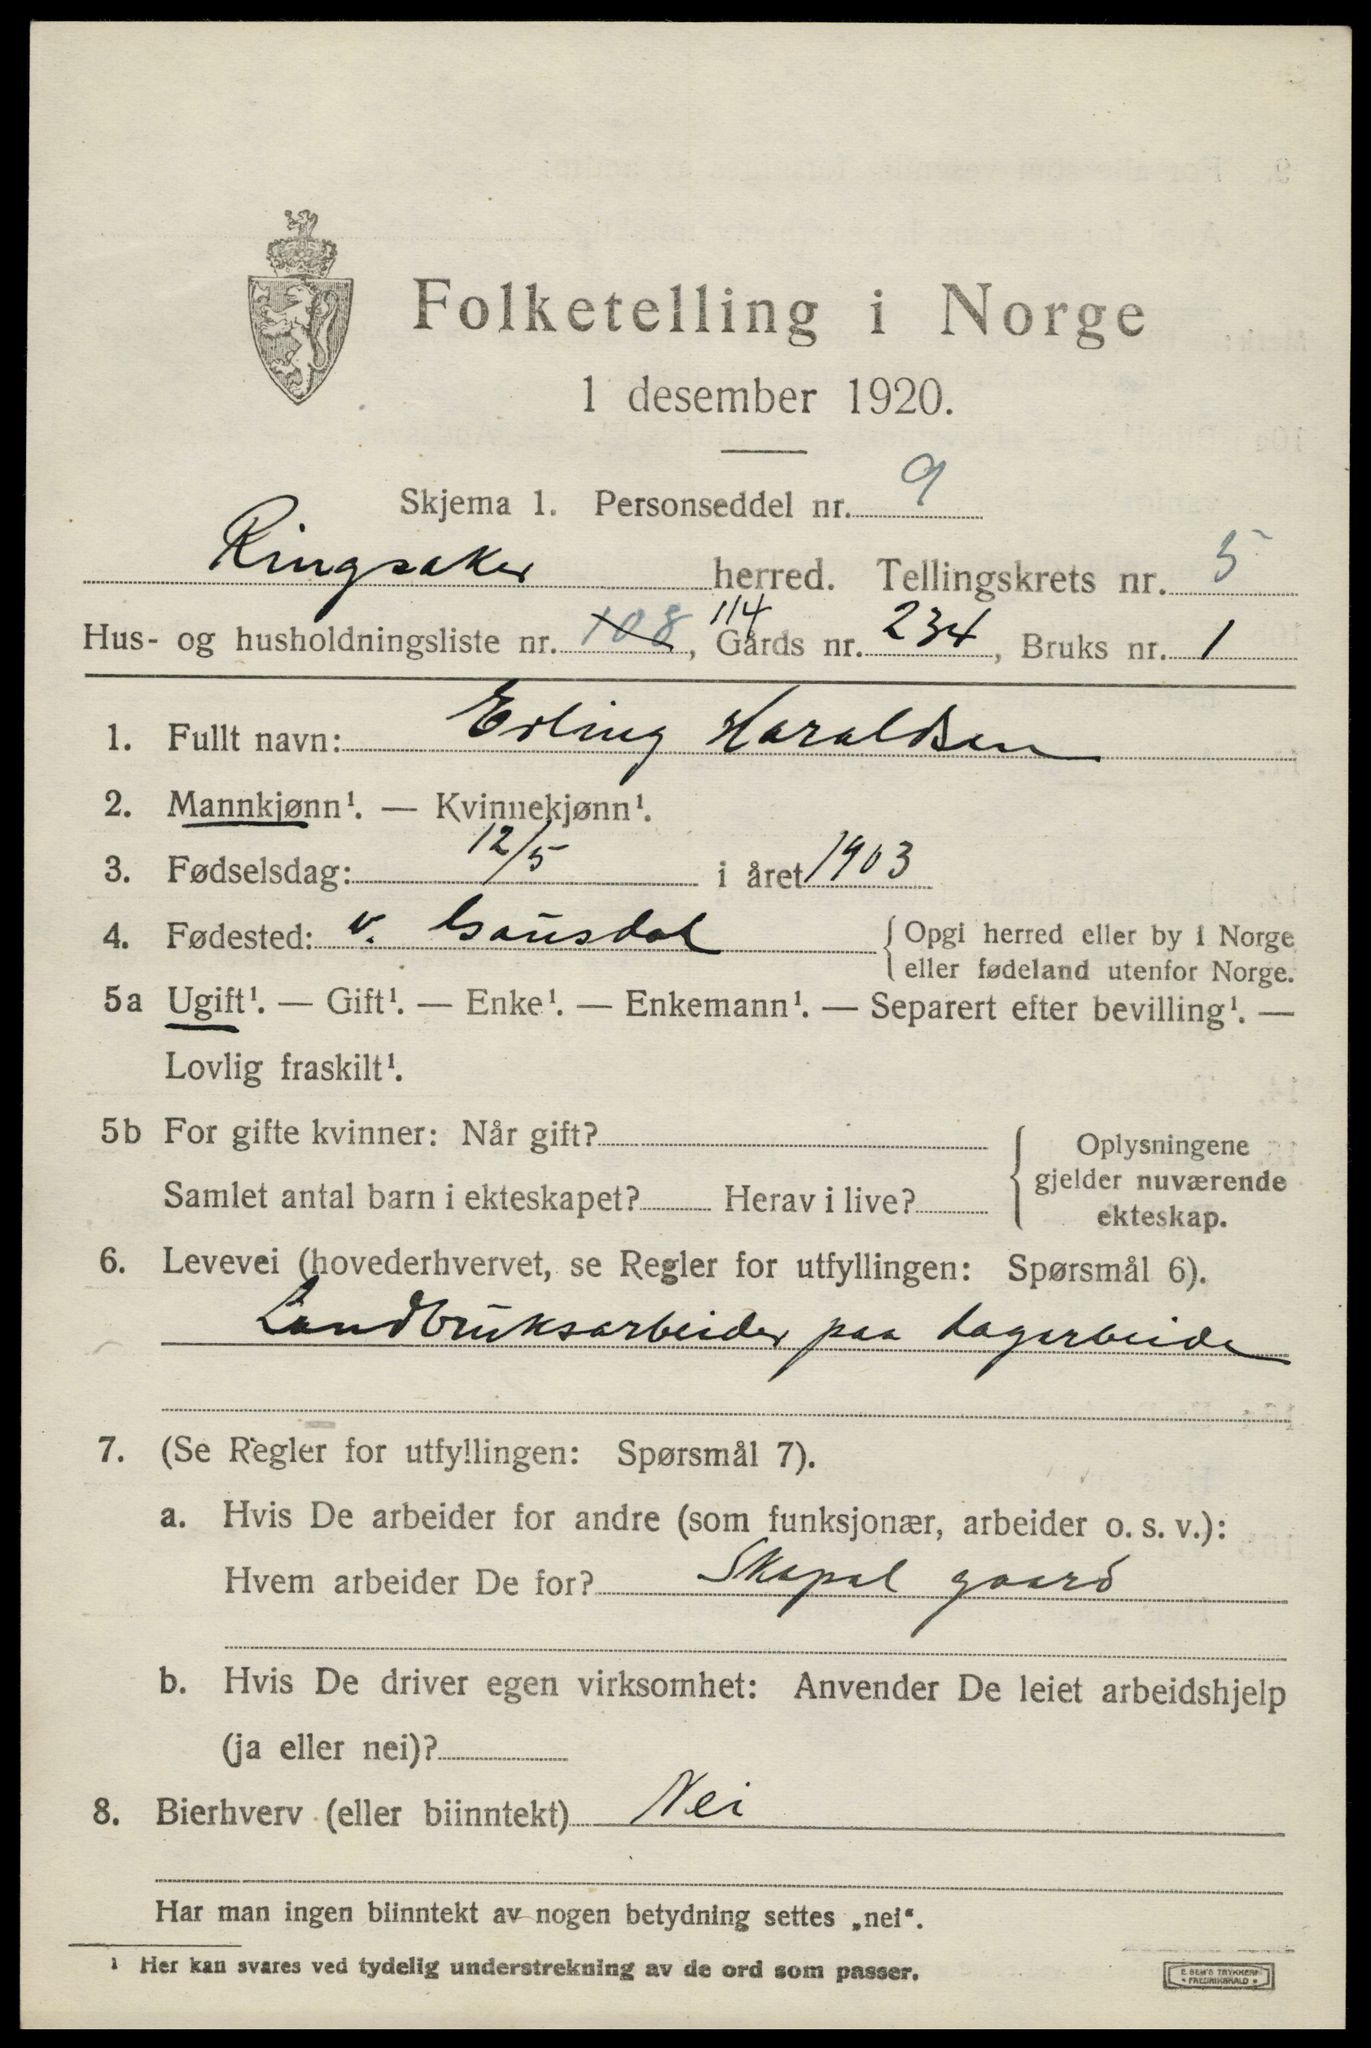 Folketelling i Norge
1 desember 1920.
Skjema 1. Personseddel nr. 9
Ringsaker herred. Tellingskrets nr. 5
Hus- og husholdningsliste nr. 108 114, Gårds nr. 234, Bruks nr. 1
1. Fullt navn: Erling Haraldsen
2. Mannkjønn¹. — Kvinnekjønn¹.
3. Fødselsdag: 12/5 i året 1903
4. Fødested: v. Gausdal { Opgi herred eller by i Norge
eller fødeland utenfor Norge.
5a Ugift¹. — Gift¹. — Enke¹. — Enkemann¹. — Separert efter bevilling¹. —
Lovlig fraskilt¹.
5b For gifte kvinner: Når gift?
Samlet antal barn i ekteskapet? Herav i live?
Oplysningene
gjelder nuværende
ekteskap.
6. Levevei (hovederhvervet, se Regler for utfyllingen: Spørsmål 6).
Landbruksarbeider paa dagarbeide
7. (Se Regler for utfyllingen: Spørsmål 7).
a. Hvis De arbeider for andre (som funksjonær, arbeider o. s. v.):
Hvem arbeider De for? Skapal gaard
b. Hvis De driver egen virksomhet: Anvender De leiet arbeidshjelp
(ja eller nei)?
8. Bierhverv (eller biinntekt) Nei
Har man ingen biinntekt av nogen betydning settes „nei“.
¹ Her kan svares ved tydelig understrekning av de ord som passer.
E. SEM'S TRYKKERI
FREDRIKSHALD